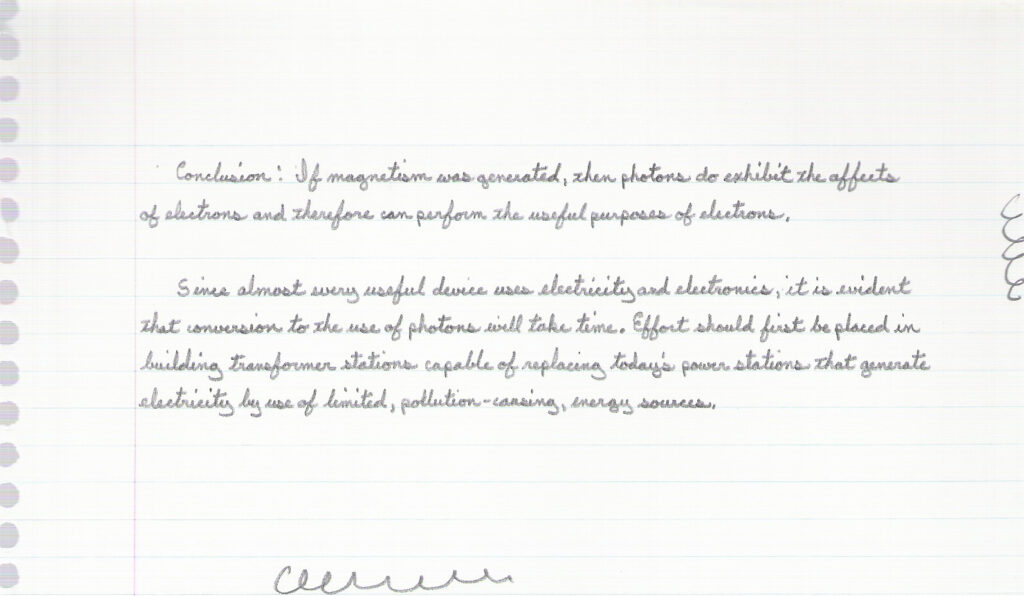 Conclusion: If magnetism was generated, then photons do exhibit the affects
of electrons and therefore can perform the useful purposes of electrons.
Since almost every useful device uses electricity and electronics, it is evident
that conversion to the use of photons will take time. Effort should first be placed in
building transformer stations capable of replacing today's power stations that generate
electricity by use of limited, pollution-causing, energy sources.